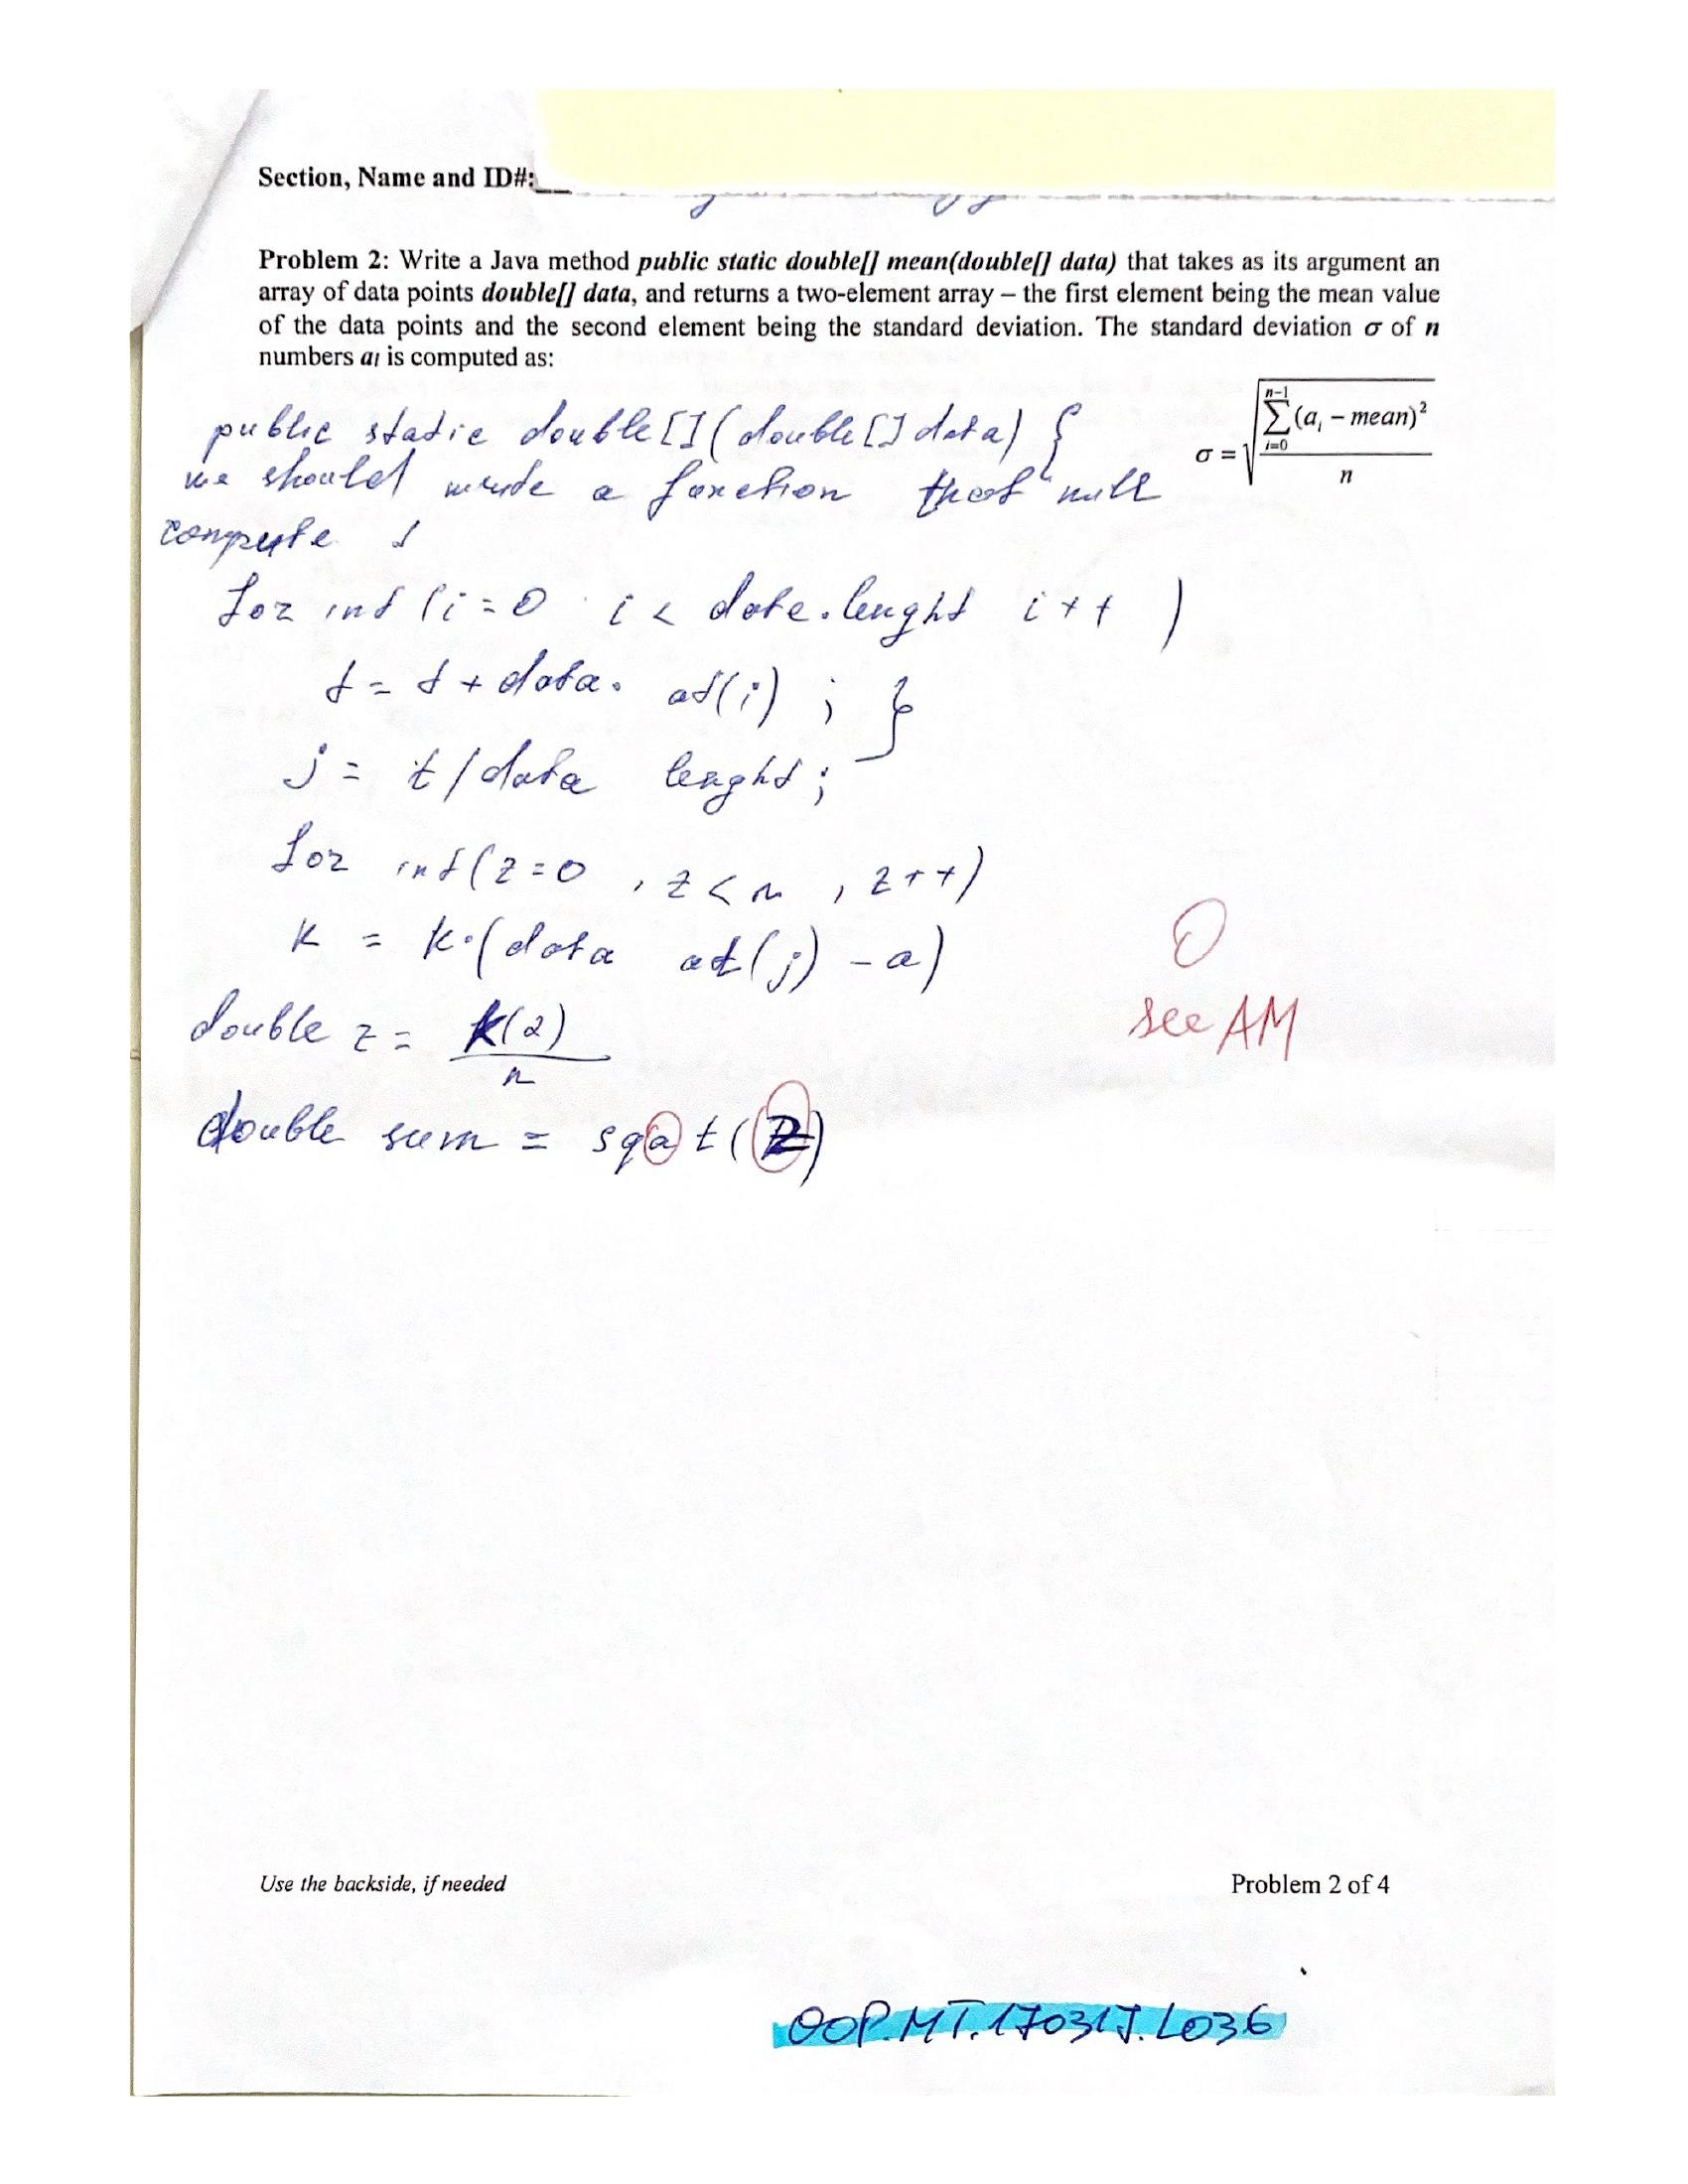 Section, Name and ID#:
Problem 2: Write a Java method public static double[] mean(double[] data) that takes as its argument an
array of data points double[] data, and returns a two-element array – the first element being the mean value
of the data points and the second element being the standard deviation. The standard deviation σ of n
numbers ai is computed as:
σ = √( ∑ i=0 n−1 (ai − mean)² / n )
public static double[] (double[] data) {
we should write a function that will
compute
for int (i = 0 i < date.lenght i++ )
t = t + data. at(i) ; }
j = t / data lenght ;
for int (z = 0 , z < n , z++)
k = k·(data at(j) - a)
0
see AM
double z = k(2) / n
double sum = sqat(z)
Use the backside, if needed
Problem 2 of 4
OOP.MT.170317.L036